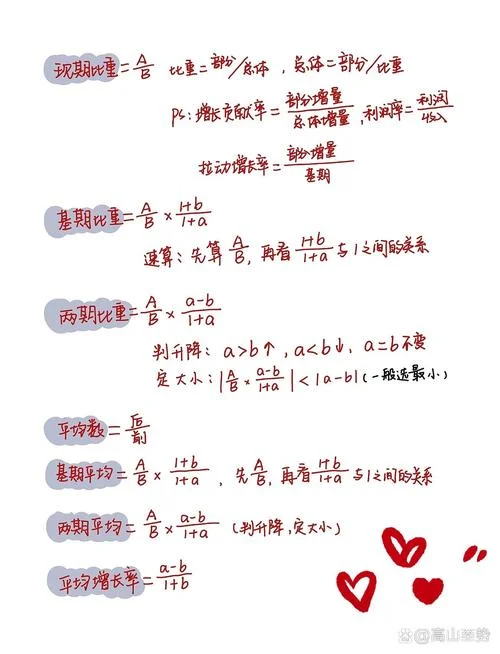 现期比重=A/B 比重=部分/总体,总体=部分/比重
PS:增长贡献率=部分增量/总体增量,利润率=利润/收入
拉动增长率=部分增量/基期
基期比重=A/B×(1+b)/(1+a)
速算:先算A/B,再看(1+b)/(1+a)与1之间的关系
两期比重=A/B×(a-b)/(1+a)
判升降:a>b↑,a<b↓,a=b不变
定大小:|A/B×(a-b)/(1+a)|<|a-b|(一般选最小)
平均数=后/前
基期平均=A/B×(1+b)/(1+a),先A/B,再看(1+b)/(1+a)与1之间的关系
两期平均=A/B×(a-b)/(1+a)(判升降,定大小)
平均增长率=(a-b)/(1+b)